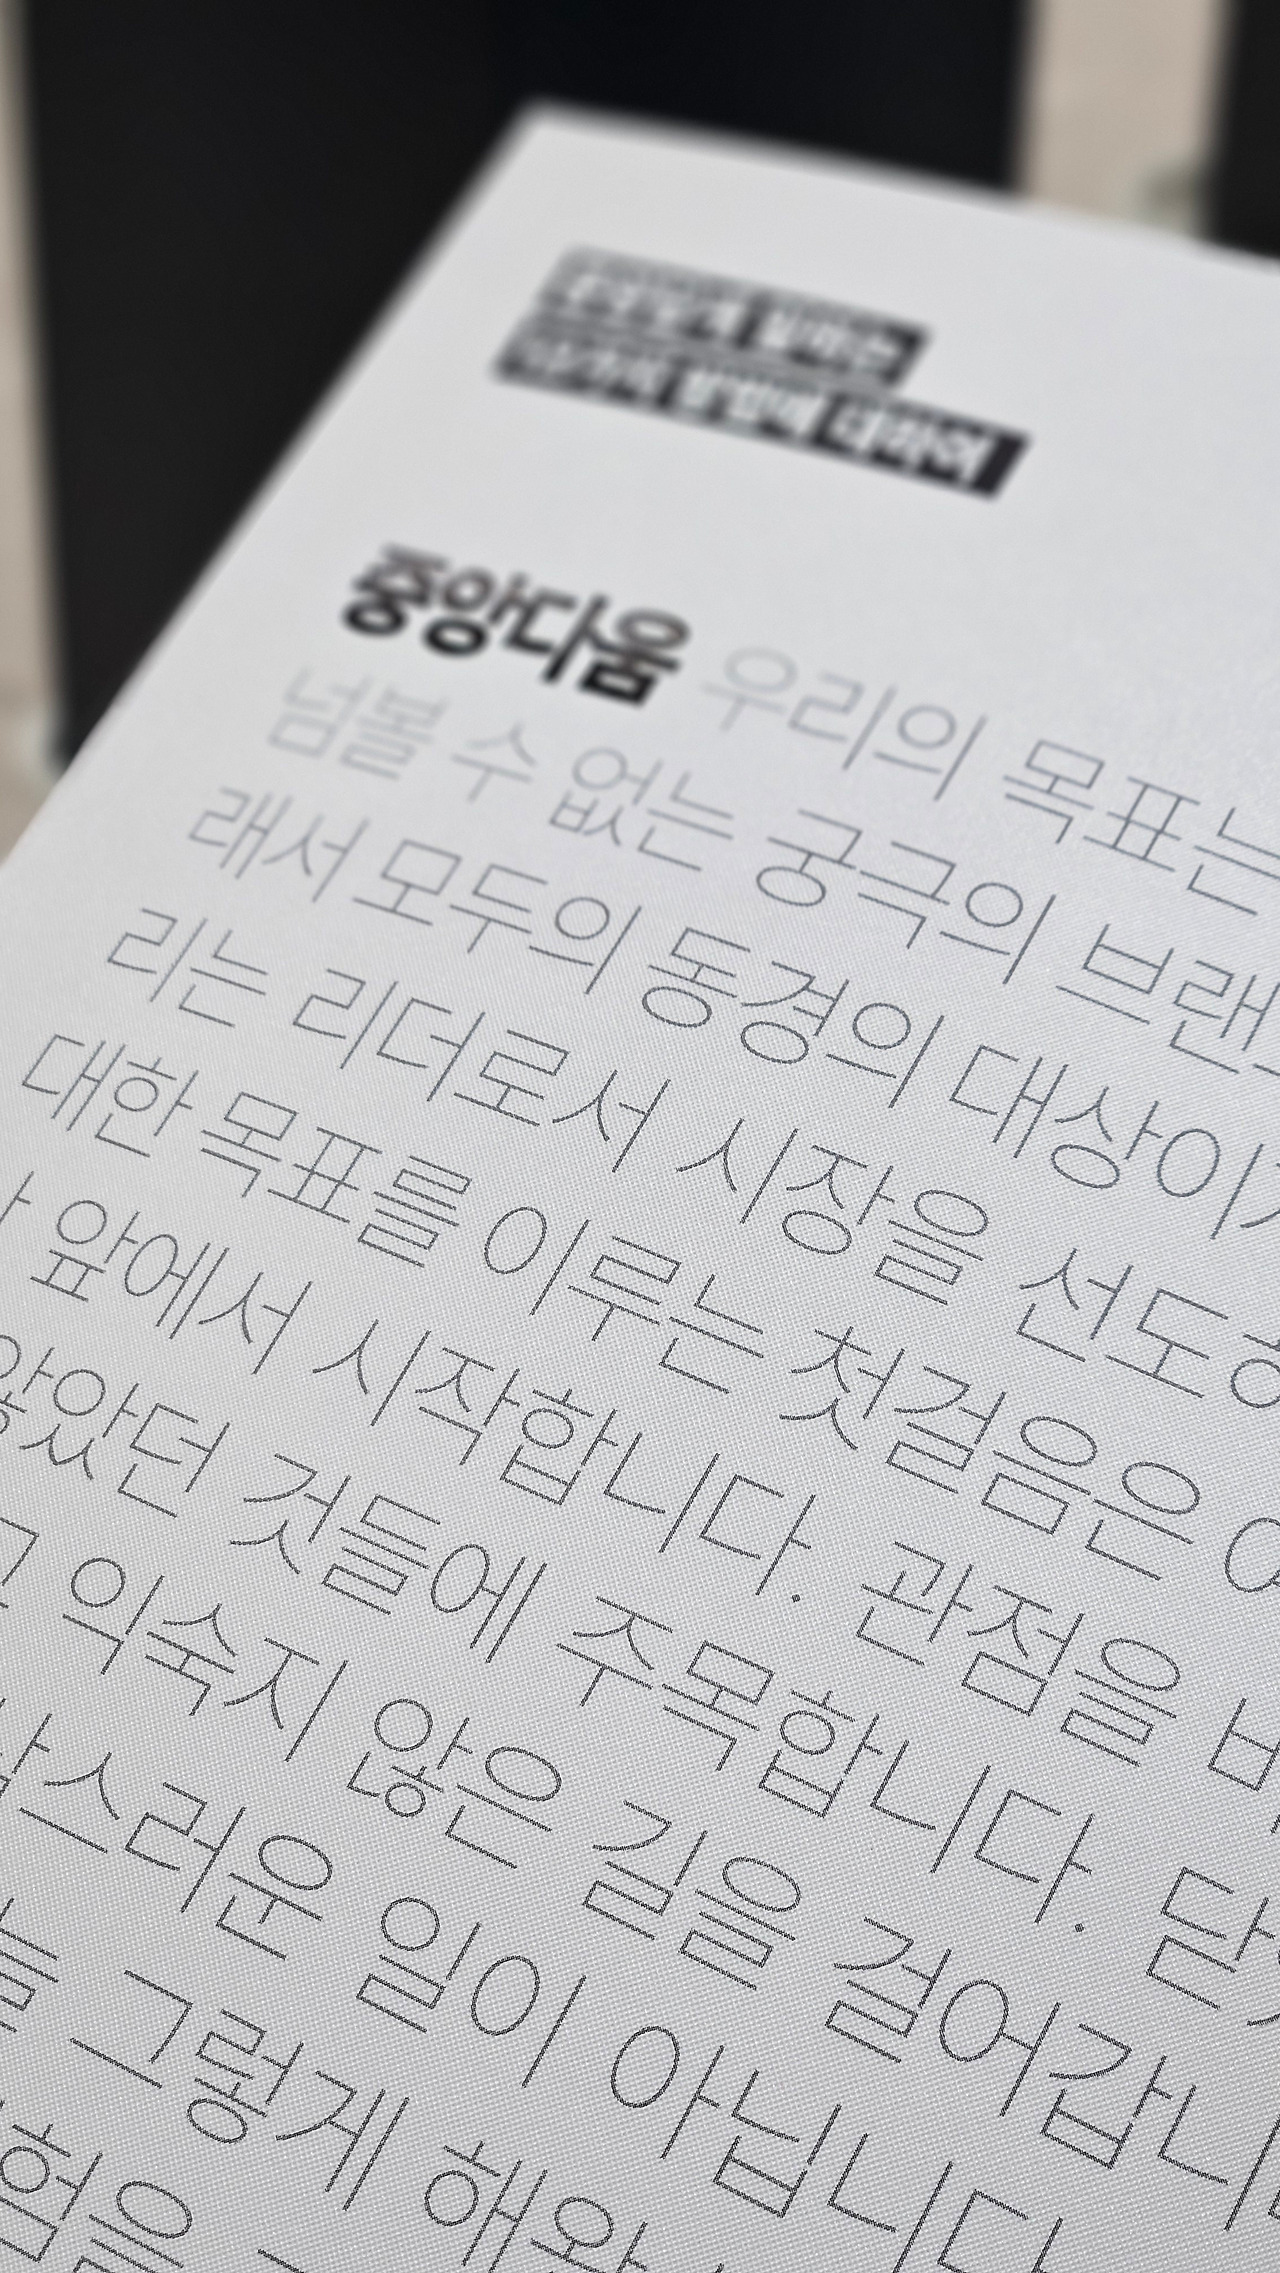 중앙다움 우리의 목표는
넘볼 수 없는 궁극의 브랜
래서 모두의 동경의 대상이
리는 리더로서 시장을 선도
대한 목표를 이루는 첫걸음은
앞에서 시작합니다. 관점을
않았던 것들에 주목합니다.
익숙지 않은 길을 걸어갑니
스러운 일이 아닙니다
그렇게 해왔
험을